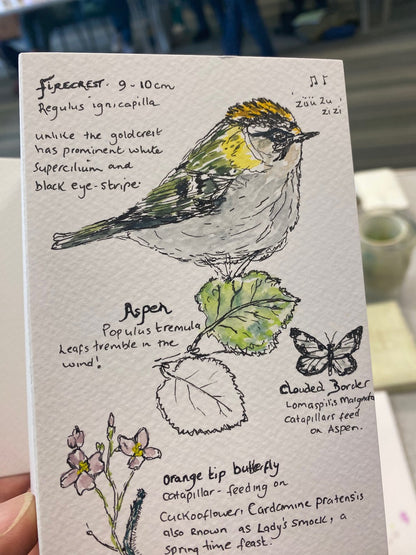 Firecrest. 9-10cm
Regulus ignicapilla
unlike the goldcrest
has prominent white
supercilium and
black eye-stripe
züü zu
zi zi
Aspen
Populus tremula
Leafs tremble in the
wind!
Clouded Border
Lomaspilis Marginata
catapillars feed
on Aspen.
orange tip butterfly
catapillar - feeding on
Cuckooflower, Cardamine pratensis
also known as Lady's smock, a
spring time feast.